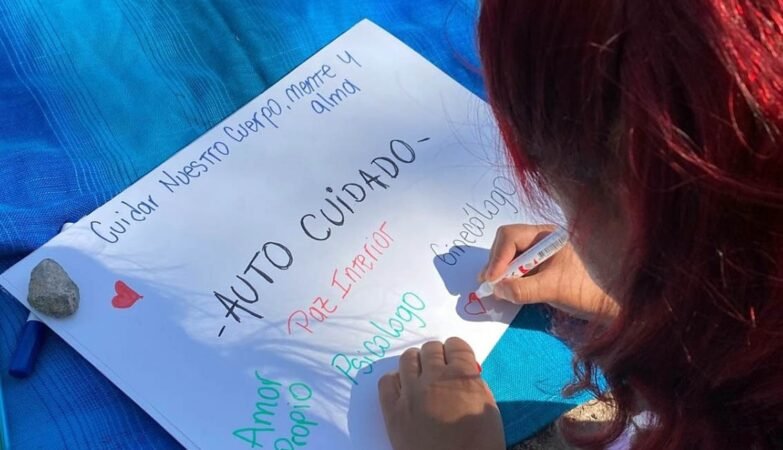 Cuidar Nuestro Cuerpo, mente y
alma
-AUTO CUIDADO-
Ginecólogo
Paz Interior
Psicólogo
Amor
Propio